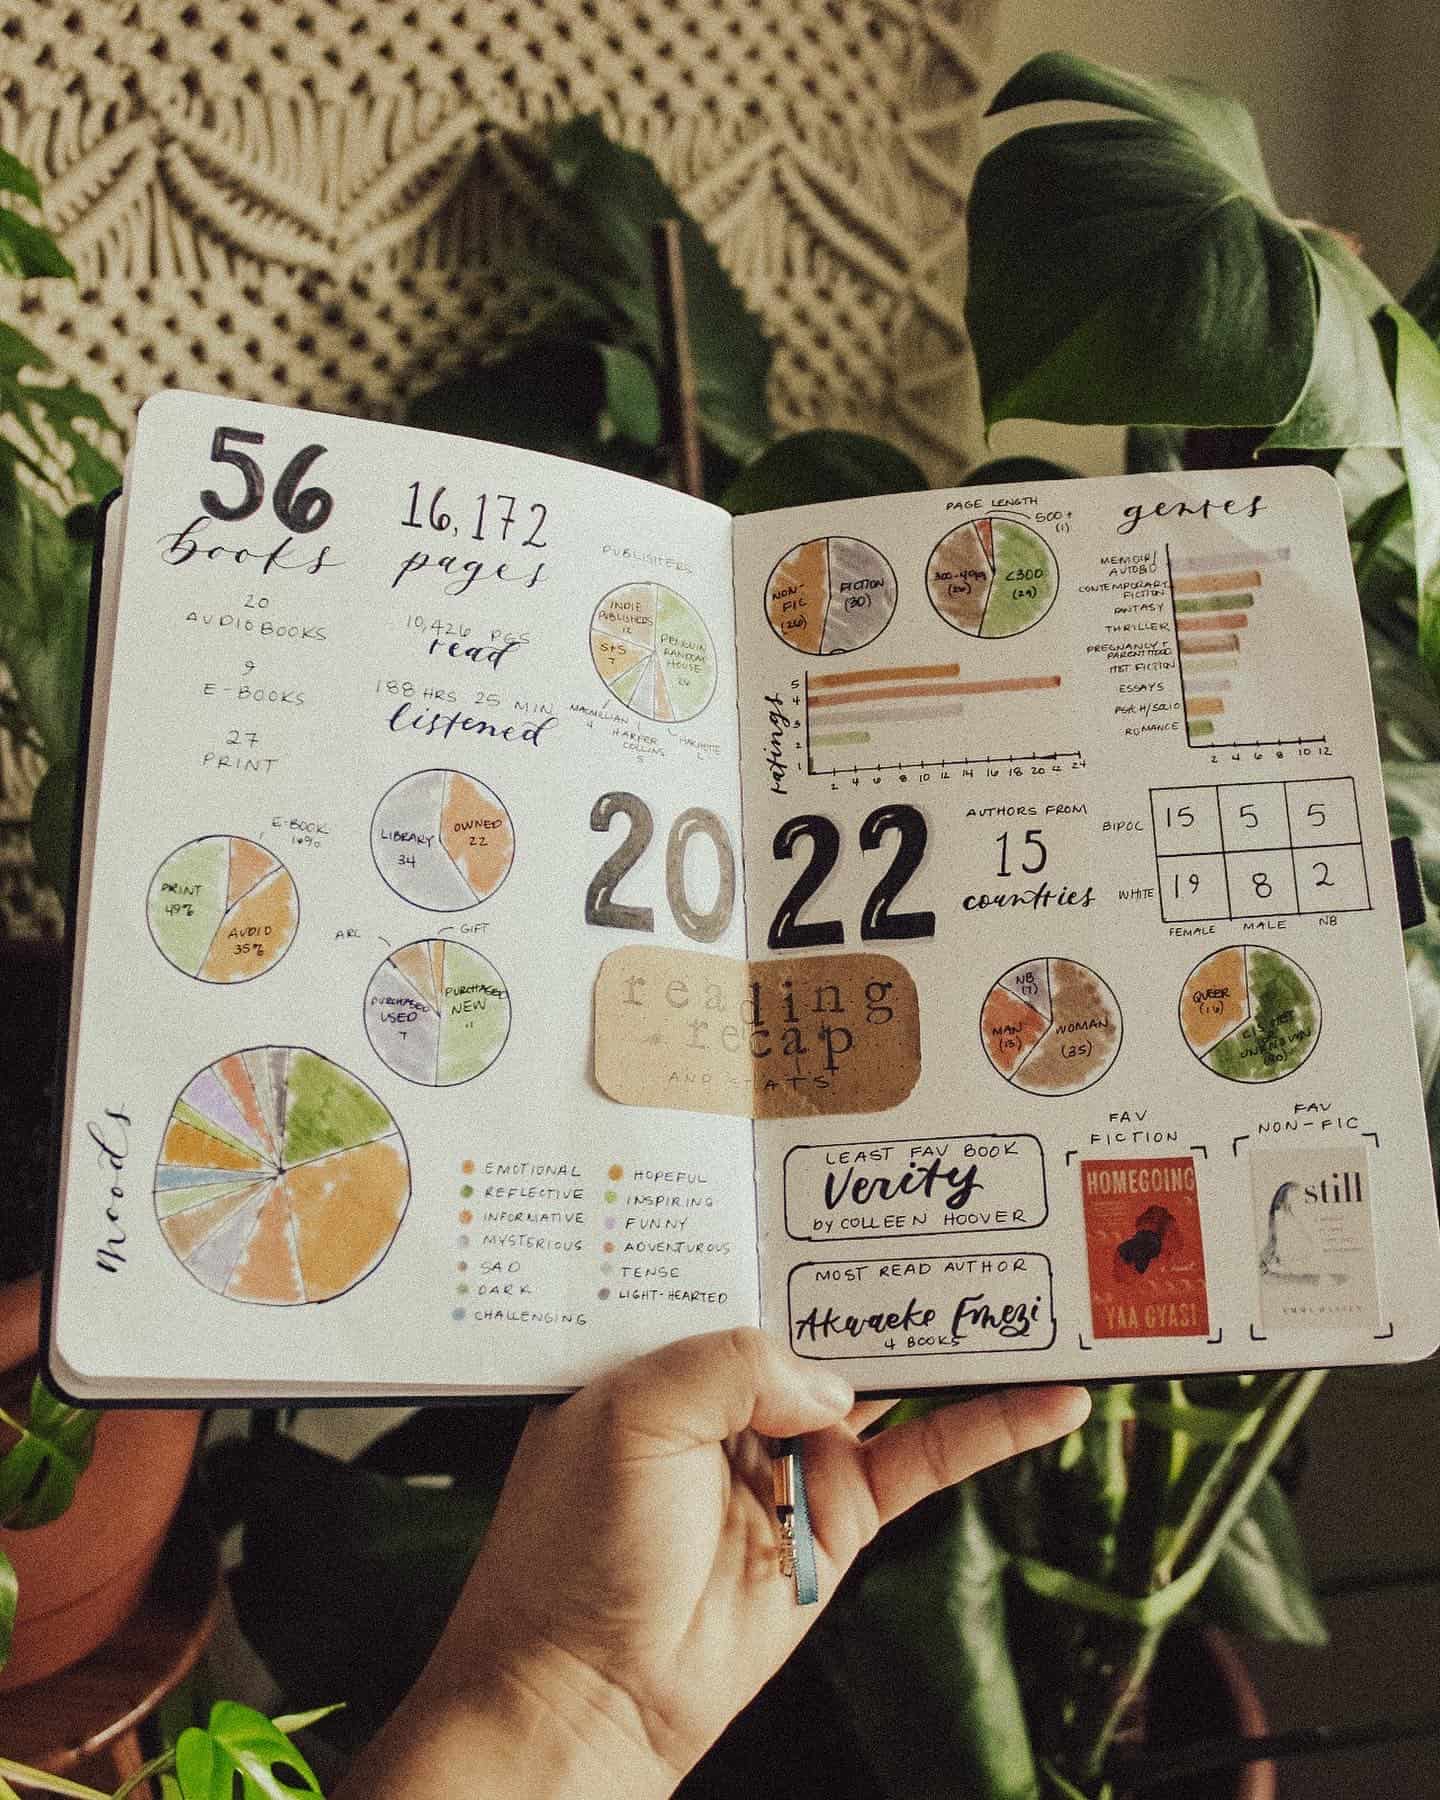 56
books
16,172
pages
20
AUDIOBOOKS
9
E-BOOKS
27
PRINT
10,426 PGS
read
188 HRS 25 MIN
listened
PUBLISHERS
INDIE
PUBLISHERS
12
S+S
7
PENGUIN
RANDOM
HOUSE
MACMILLAN
4
HARPER
COLLINS
5
HACHETTE
E-BOOK
16%
PRINT
49%
AUDIO
35%
LIBRARY
34
OWNED
22
ARC
GIFT
PURCHASED
USED
7
PURCHASED
NEW
11
moods
EMOTIONAL
REFLECTIVE
INFORMATIVE
MYSTERIOUS
SAD
DARK
CHALLENGING
HOPEFUL
INSPIRING
FUNNY
ADVENTUROUS
TENSE
LIGHT-HEARTED
2022
reading
recap
AND STATS
NON-
FIC
(26)
FICTION
(30)
PAGE LENGTH
500+
(1)
300-499
(26)
<300
(29)
genres
MEMOIR/
AUTOBIO
CONTEMPORARY
FICTION
FANTASY
THRILLER
PREGNANCY +
PARENTHOOD
HIST FICTION
ESSAYS
PSYCH/SOCIO
ROMANCE
2 4 6 8 10 12
ratings
5
4
3
2
1
2 4 6 8 10 12 14 16 18 20 22 24
AUTHORS FROM
15
countries
BIPOC 15 5 5
WHITE 19 8 2
FEMALE MALE NB
NB
(7)
MAN
(13)
WOMAN
(35)
QUEER
(16)
CIS HET
OR
UNKNOWN
(40)
LEAST FAV BOOK
Verity
by COLLEEN HOOVER
MOST READ AUTHOR
Akwaeke Emezi
4 BOOKS
FAV
FICTION
HOMEGOING
YAA GYASI
FAV
NON-FIC
still